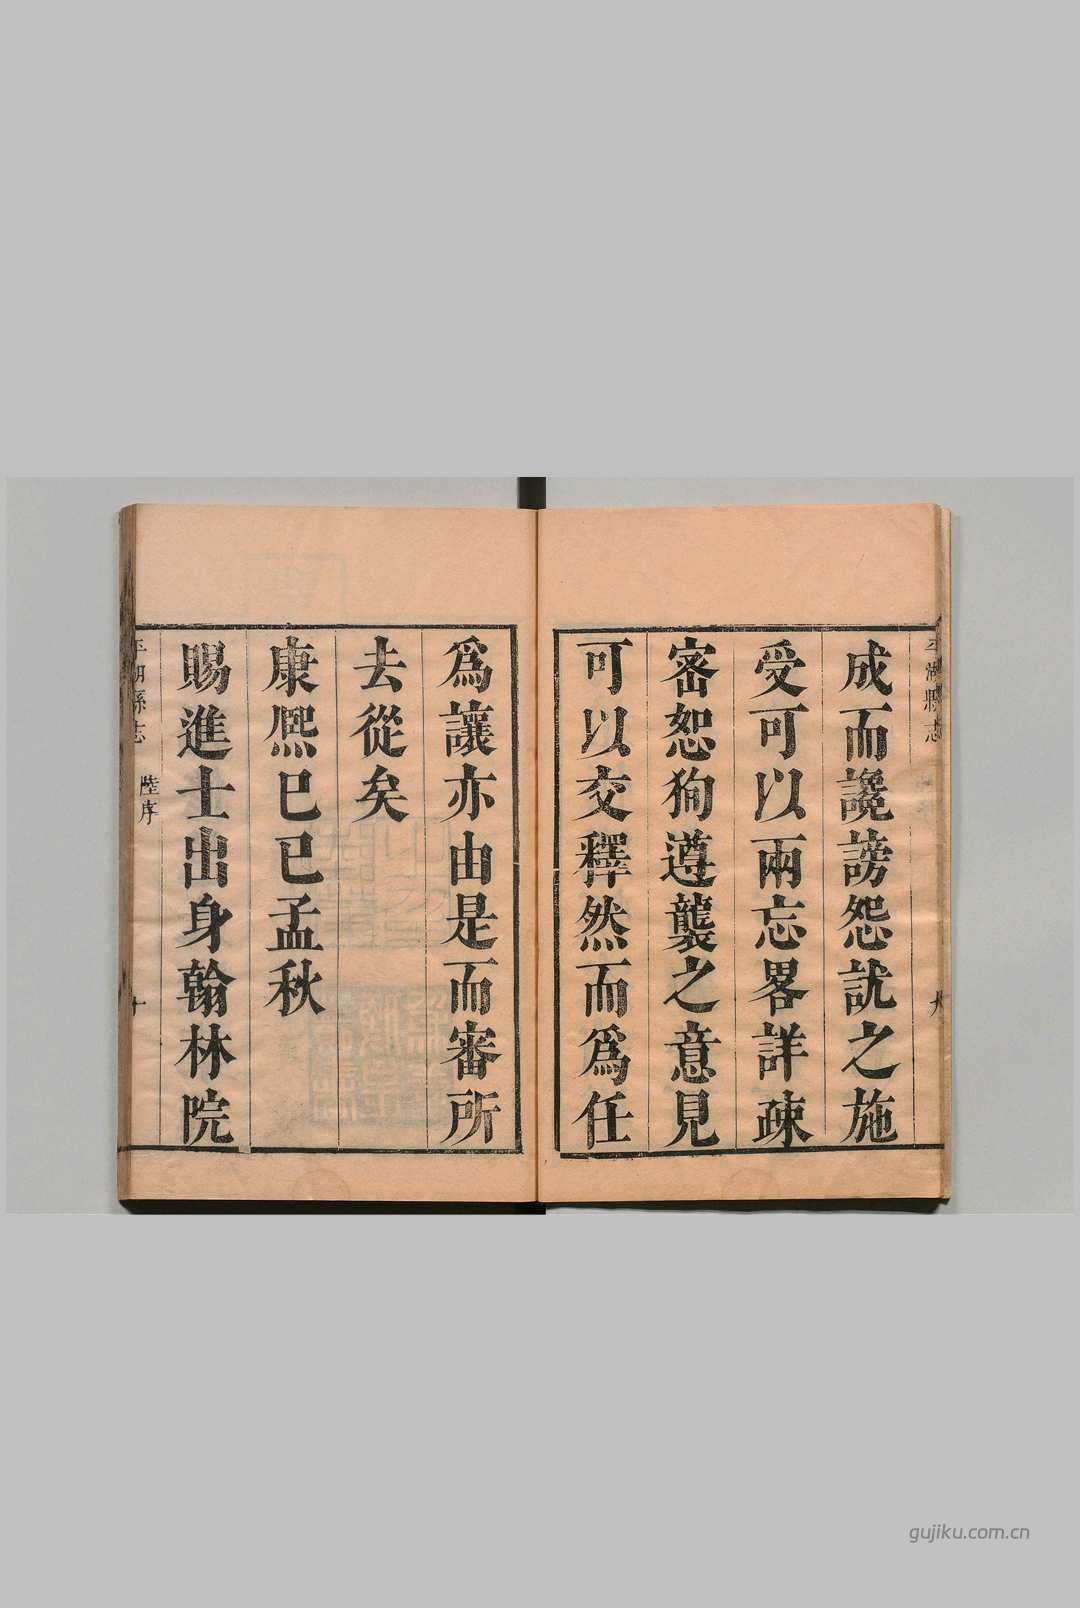 平湖縣志
成而讒謗怨訧之施
受可以兩忘畧詳疎
密恕狥遵襲之意見
可以交釋然而爲任
爲讓亦由是而審所
去從矣
康熈巳巳孟秋
賜進士出身翰林院
平湖縣志 陸序 十
gujiku.com.cn